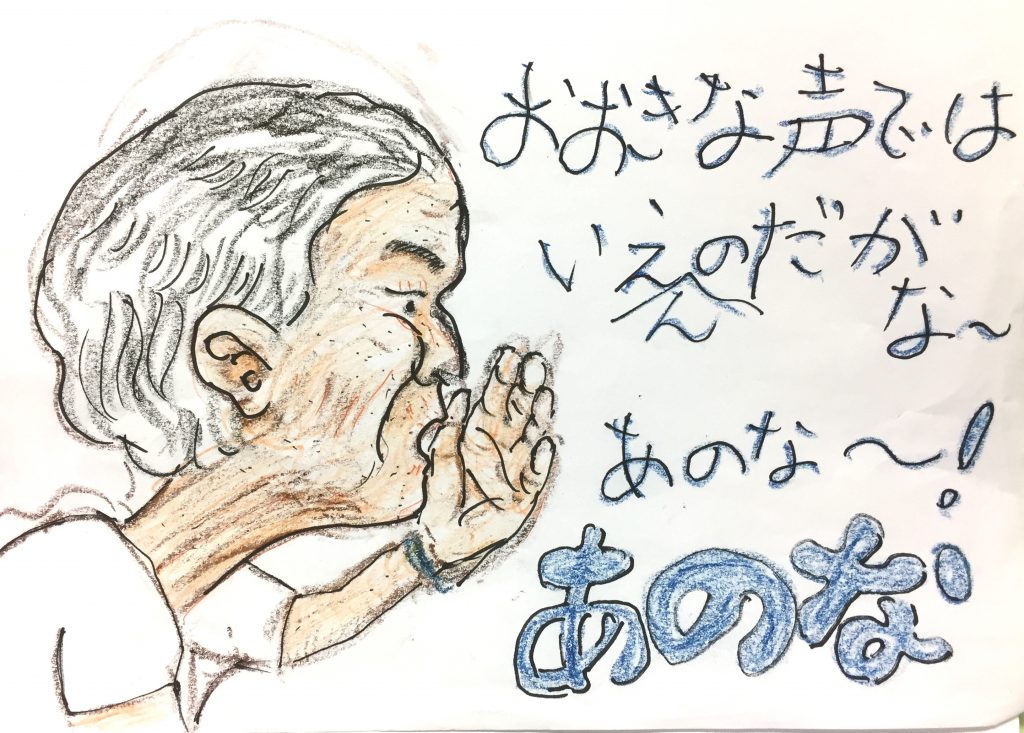 おおきな声では
いえんのだが
な〜
あのな〜!
あのな